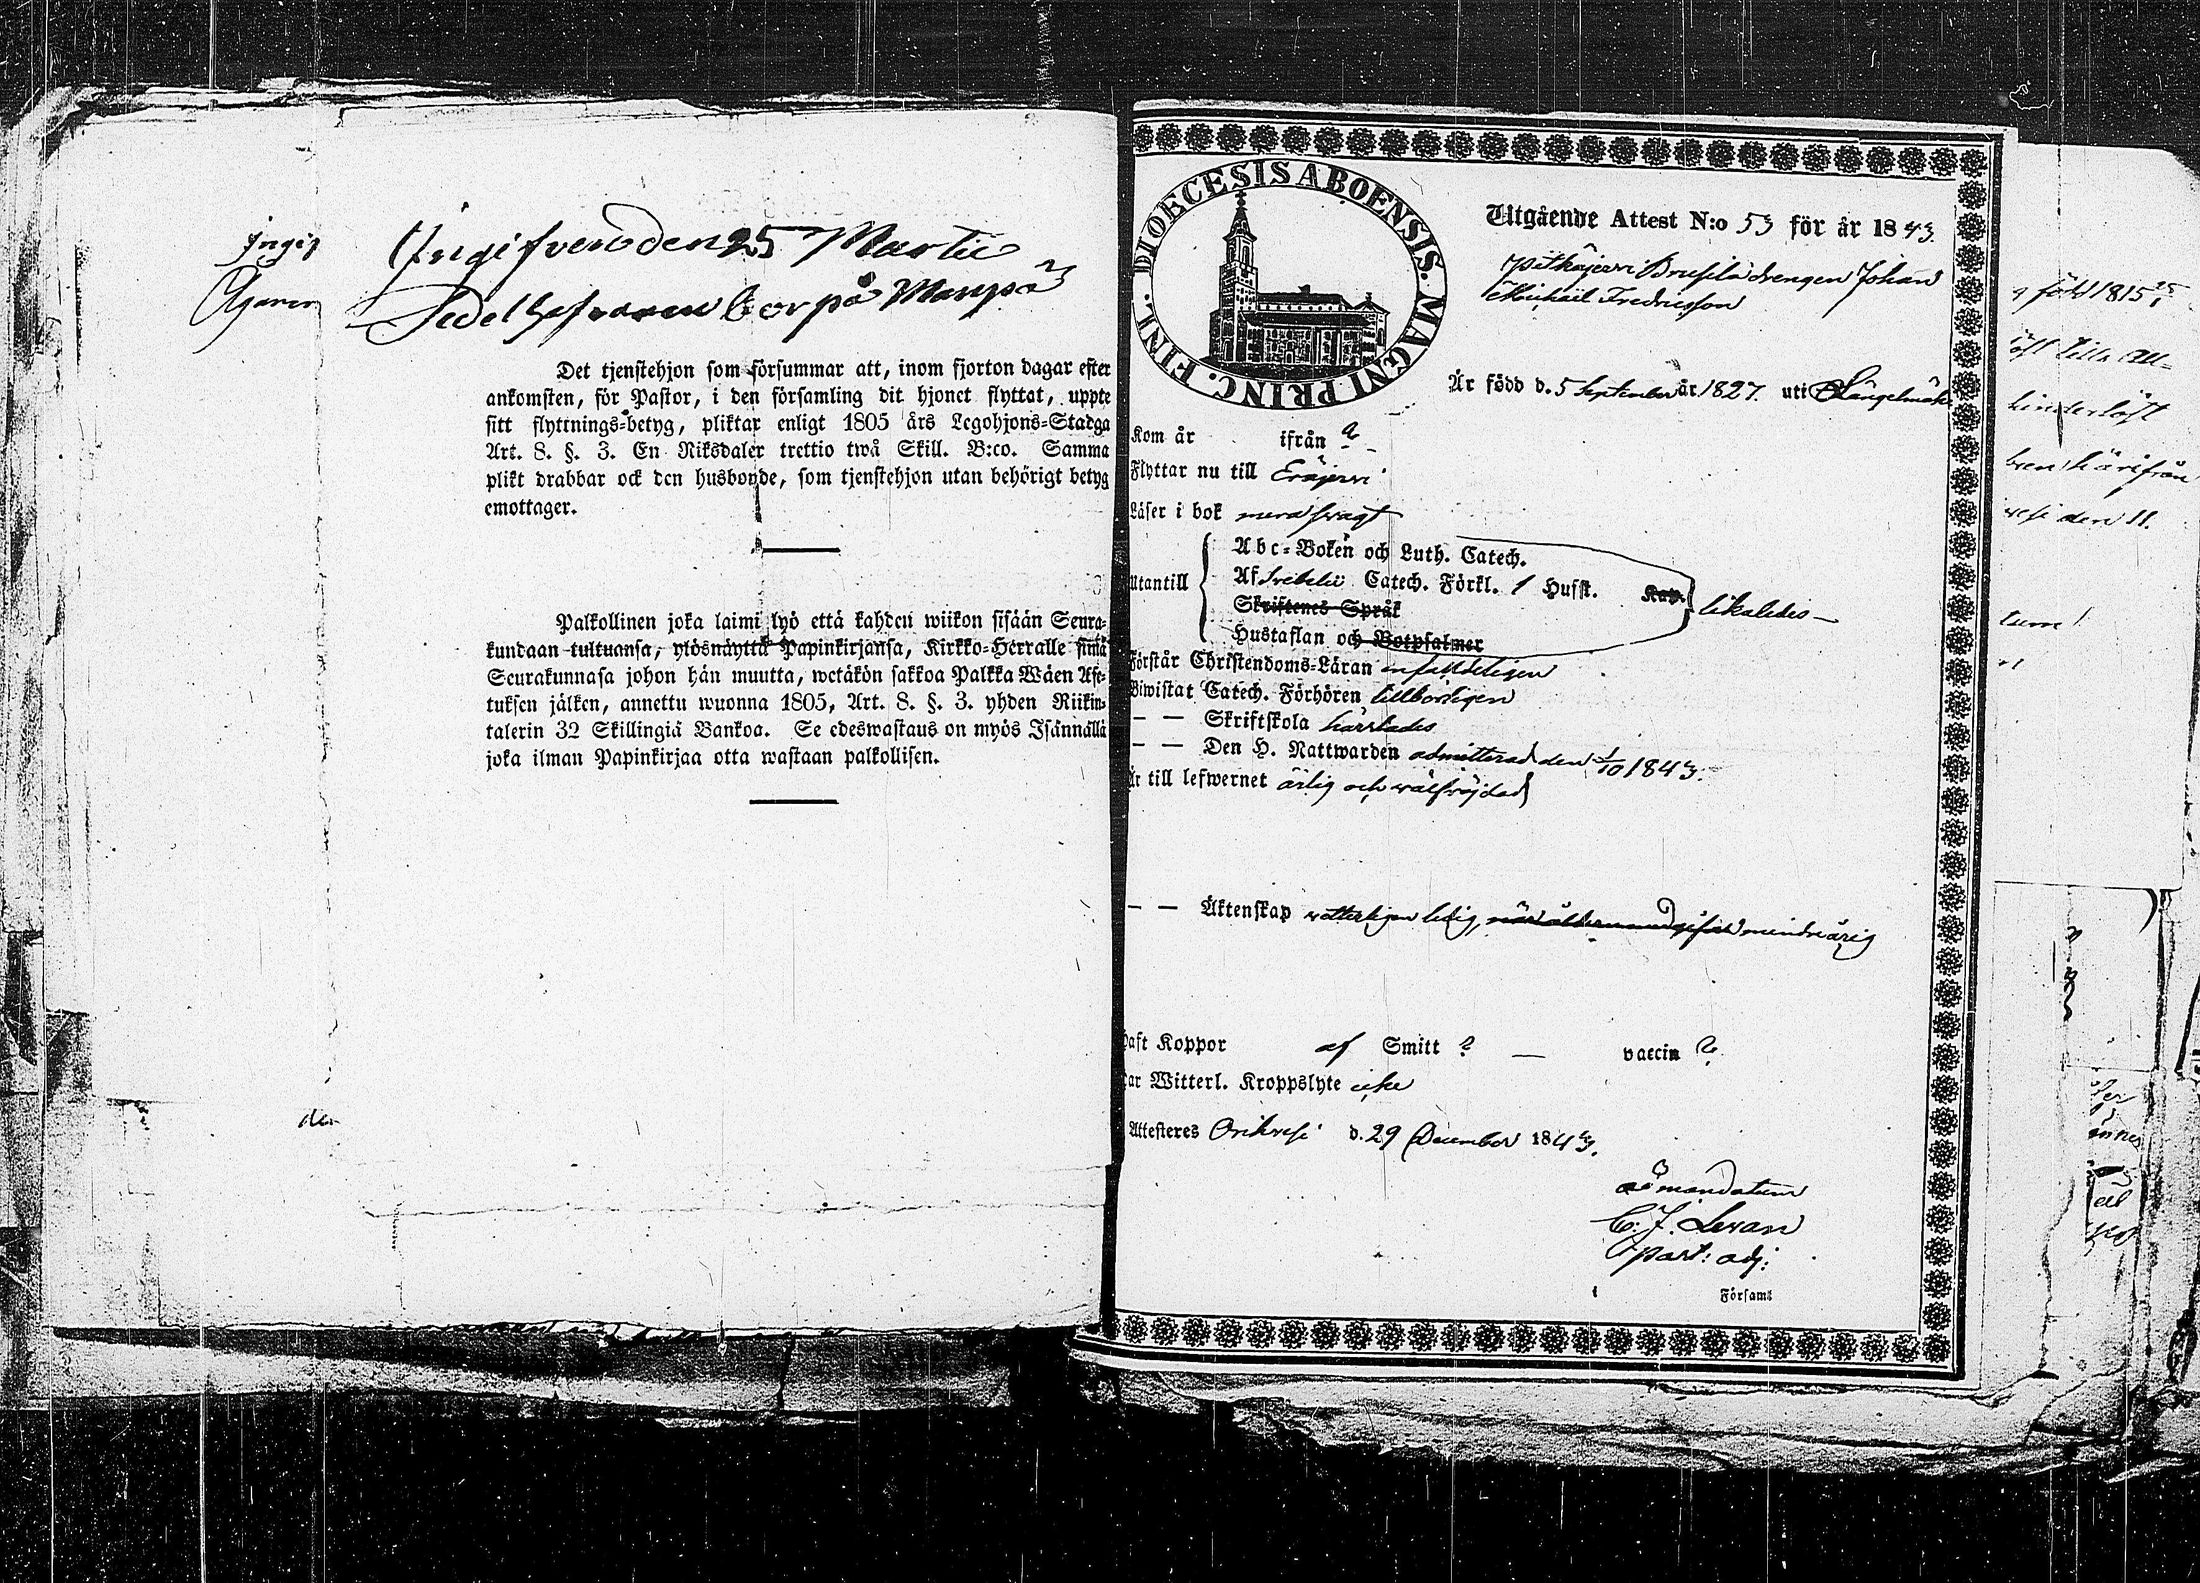 Ingif
Ägaren
Ingifven den 25 Martii
Sedel hafvaren bor på Manpä
Det tjenstehjon som försummar att, inom fjorton dagar efter
ankomsten, för Pastor, i den församling dit hjonet flyttat, uppte
sitt flyttnings=betyg, pliktar enligt 1805 års Legohjons=Stadga
Art. 8. §. 3. En Riksdaler trettio twå Skill. B:co. Samma
plikt drabbar ock den husbonde, som tjenstehjon utan behörigt betyg
emottager.
Palkollinen joka laimi lyö että kahden wiikon sisään Seura-
kundaan tultuansa, ylösnäyttä Papinkirjansa, Kirkko=Herralle siinä
Seurakunnasa johon hän muutta, wetäkön sakkoa Palkka Wäen Ase-
tuksen jälken, annettu wuonna 1805, Art. 8. §. 3. yhden Riikin-
talerin 32 Skillingiä Bankoa. Se edeswastaus on myös Isännällä
joka ilman Papinkirjaa otta wastaan palkollisen.
den
DIOECESIS ABOENSIS. MAGNI PRINC. FINL.
Utgående Attest N:o 53 för år 1843.
Pitkäjervi Brusila drengen Johan
Michail Fredricsson
Är född d. 5 September år 1827. uti Längelmäki
Kom år ifrån ?
Flyttar nu till Eräjervi
Läser i bok mera svagt
Utantill
Abc=Boken och Luth. Catech.
Af Svebelii Catech. Förkl. 1 Husst. Kap.
Skriftenes Språk
Hustaflan och Botpsalmer
likaledes
Förstår Christendoms=Läran enfaldeligen
Biwistat Catech. Förhören tillbörligen
— — Skriftskola härstädes
— — Den H. Nattwarden admitterad den 1/10 1843.
Är till lefwernet ärlig och välfrejdad
— — Äktenskap vetterligen ledig, minderårig
Haft Koppor af Smitt ? — vaccin ?
Har Witterl. Kroppslyte icke
Attesteras Orihvesi d. 29 December 1843.
ad mandatum
C. J. Levan
past: adj:
Församl
född 1815
härifrån
vesi den 11.